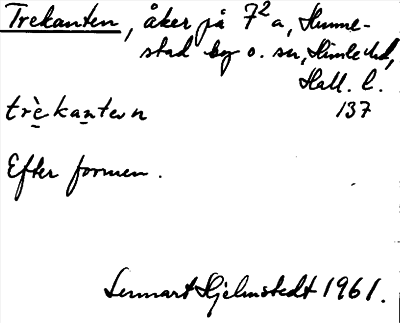 Trekanten, åker på 7² a, Hunne-
stad by o. sn, Himle hd,
Hall. l.
137
trèkanten
Efter formen.
Lennart Hjelmstedt 1961.